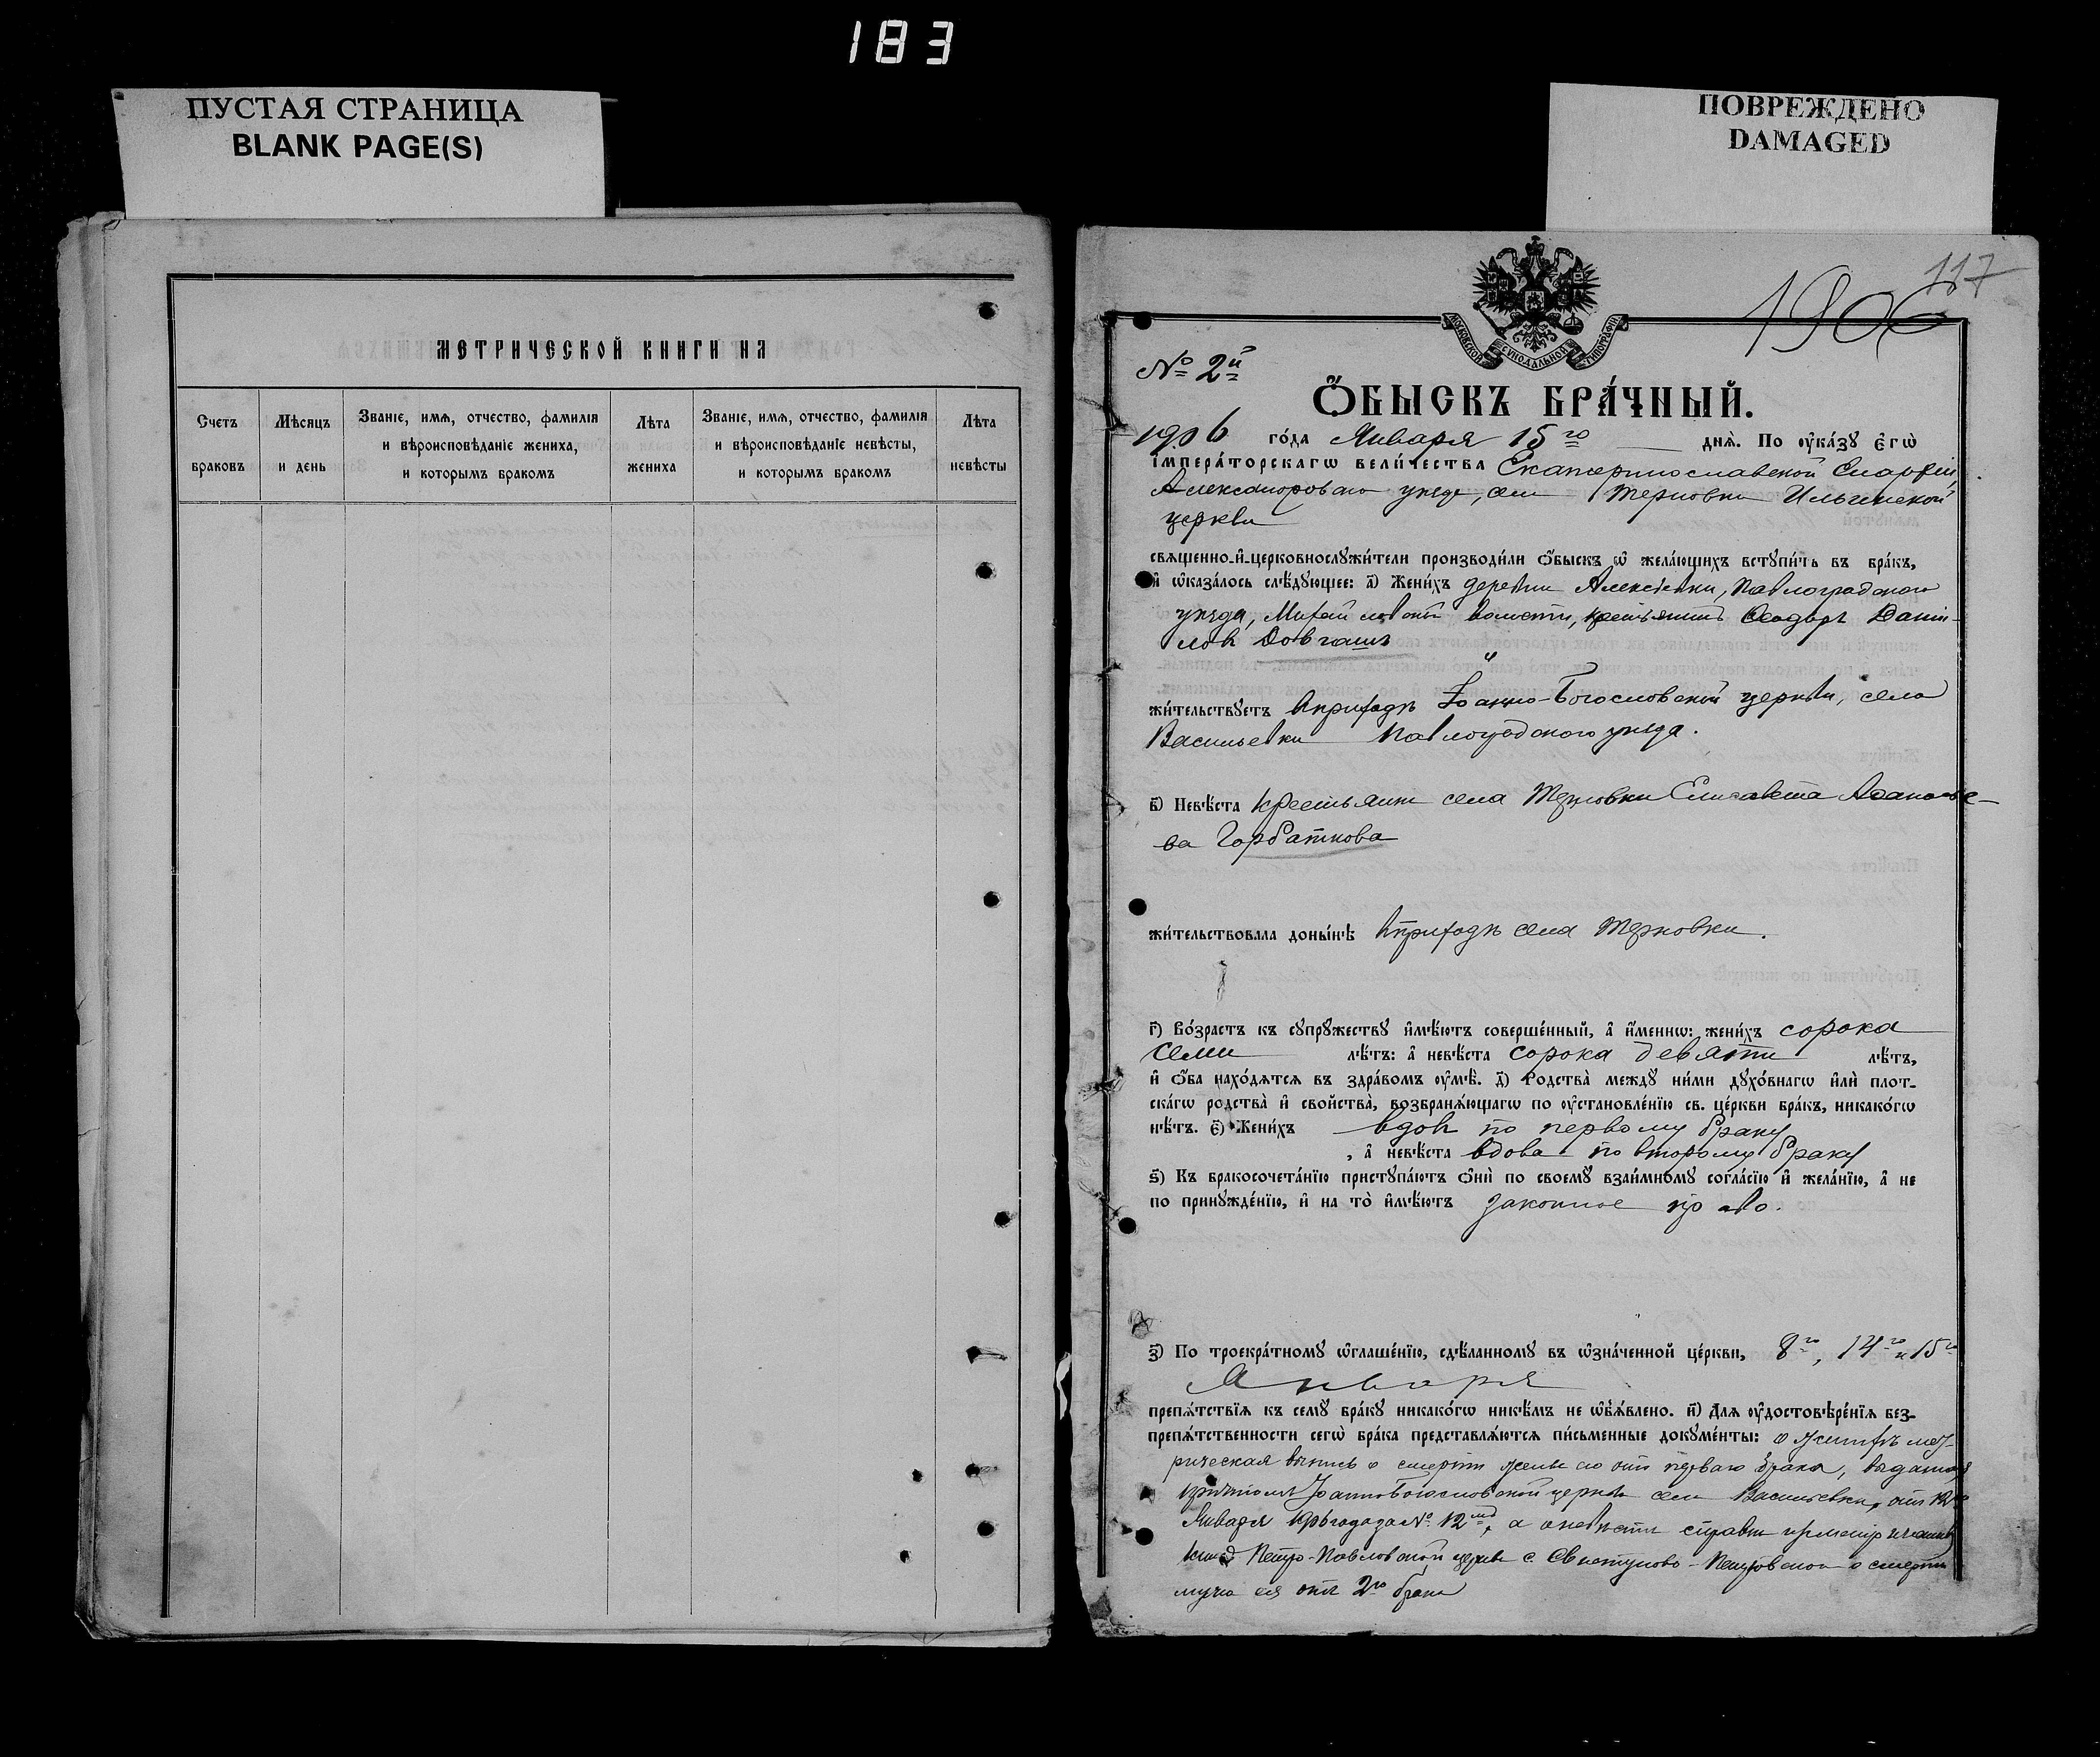 183
ПУСТАЯ СТРАНИЦА
BLANK PAGE(S)
ПОВРЕЖДЕНО
DAMAGED
МЕТРИЧЕСКОЙ КНИГИ НА
Счетъ браковъ
Мѣсяцъ и день
Званіе, имя, отчество, фамилія и вѣроисповѣданіе жениха, и которымъ бракомъ
Лѣта жениха
Званіе, имя, отчество, фамилія и вѣроисповѣданіе невѣсты, и которымъ бракомъ
Лѣта невѣсты
117
1906
МОСКОВСКОЙ СѴНОДАЛЬНОЙ ТИПОГРАФІИ
№ 2й
Ѻ҆БЫСКЪ БРА́ЧНЫЙ.
1906 го́да Января 15го дня̀. По ᲂу҆ка́зꙋ є҆гѡ̀
і҆мпера́торскагѡ вели́чества Екатеринославской Епархіи,
Александровскаго уѣзда, села Терновки Ильинской
церкви
свѧщенно-и҆-церковнослꙋжи́тели производи́ли ѻ҆́быскъ ѡ҆ жела́ющихъ встꙋпи́ть въ бра́къ,
и҆ ѡ҆каза́лось слѣ́дꙋющее: а҃) Жени́хъ деревни Алексѣевки, Павлоградскаго
уѣзда, волости, крестьянинъ Ѳеодоръ Дани-
ловъ Довгаль
жи́тельствꙋетъ въ приходѣ Іоанно-Богословской церкви, села
Васильевки Павлоградскаго уѣзда.
в҃) Невѣ́ста крестьянка села Терновки Елисавета Аѳанасье-
ва Горбаткова
жи́тельствовала доны́нѣ въ приходѣ села Терновки.
г҃) Во́зрастъ къ сꙋпрꙋ́жествꙋ и҆мѣ́ютъ соверше́нный, а҆ и҆́меннѡ: жени́хъ сорока
семи лѣ́тъ: а҆ невѣ́ста сорока девяти лѣ́тъ,
и҆ ѻ҆́ба нахо́дѧтсѧ въ здра́вомъ ᲂу҆мѣ̀. д҃) Родства̀ междꙋ ни́ми дꙋхо́внагѡ и҆лѝ плот-
ска́гѡ родства̀ и҆ сво́йства̀, возбранѧ́ющагѡ по ᲂу҆становле́нїю св. це́ркви бра́къ, никако́гѡ
нѣ́тъ. є҃) Жени́хъ вдовъ по первому браку
, а҆ невѣ́ста вдова по второму браку
ѕ҃) Къ бракосочета́нїю пристꙋпа́ютъ ѻ҆нѝ по своемꙋ̀ взаи́мномꙋ согла́сїю и҆ жела́нїю, а҆ не
по принꙋжде́нїю, и҆ на то̀ и҆мѣ́ютъ законное право.
з҃) По троекра́тномꙋ ѡ҆глаше́нїю, сдѣ́ланномꙋ въ ѡ҆зна́ченной це́ркви, 8го, 14го и 15го
Января
препѧ́тствїѧ къ семꙋ̀ бра́кꙋ никако́гѡ никѣ́мъ не ѡ҆б̾ѧ́влено. и҃) Длѧ ᲂу҆достовѣре́нїѧ без-
препѧ́тственности сегѡ̀ бра́ка представлѧ́ютсѧ пи́сьменные докꙋме́нты: о женихѣ мет-
рическая выпись о смерти жены его отъ перваго брака, выданная
причтомъ Іоанно-Богословской церкви села Васильевки, отъ 12
Января 1906 года за № 12мъ, а о невѣстѣ справка
книгъ Петро-Павловской церкви с. о смерти
мужа ея отъ 2го брака